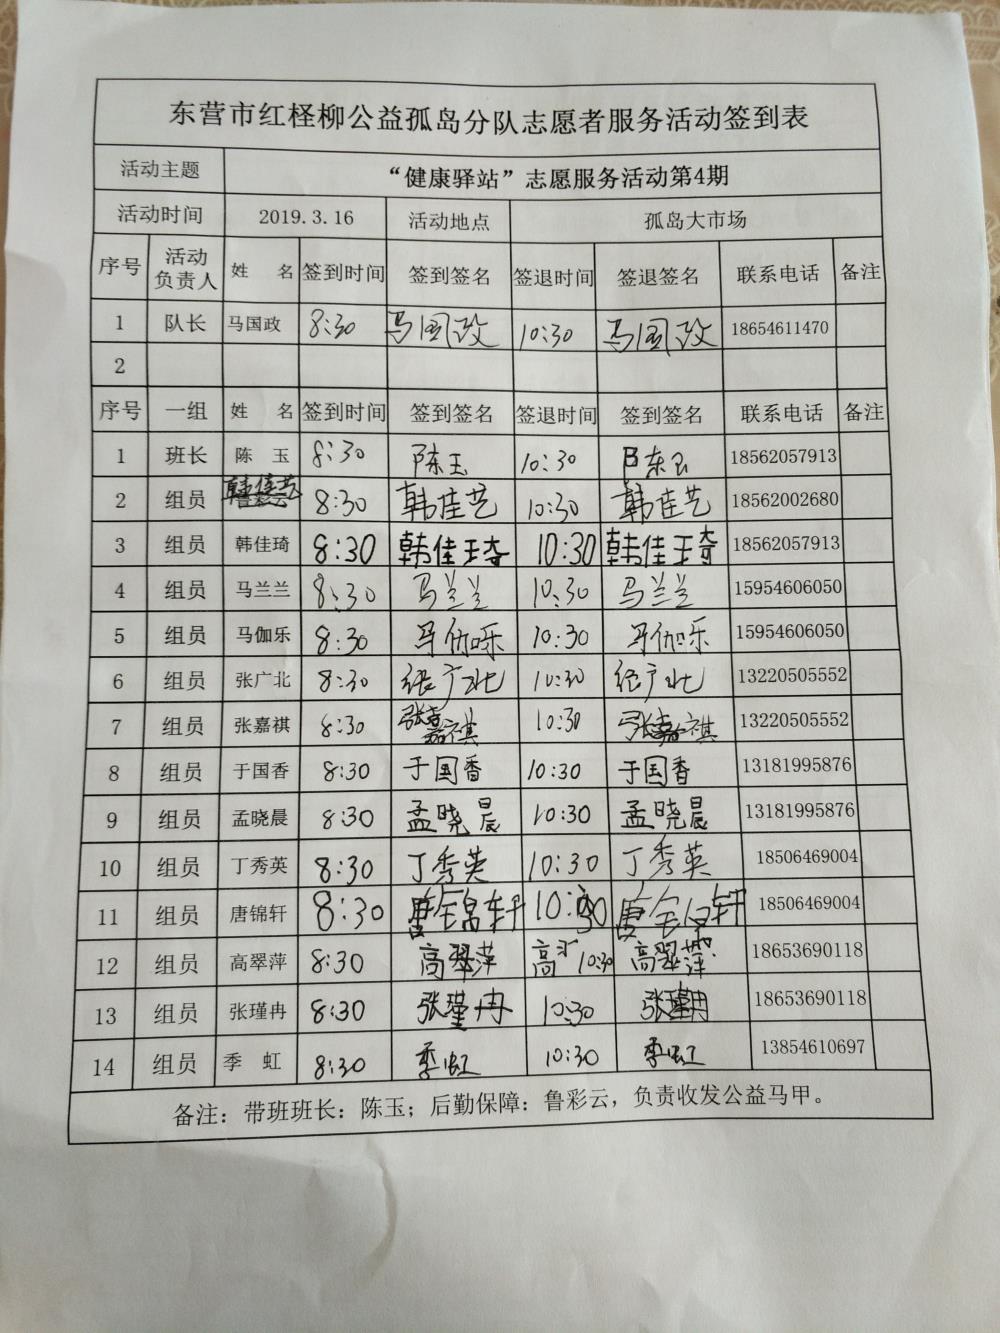 东营市红柽柳公益孤岛分队志愿者服务活动签到表
活动主题 “健康驿站”志愿服务活动第4期
活动时间 2019.3.16 活动地点 孤岛大市场
序号 活动负责人 姓 名 签到时间 签到签名 签退时间 签退签名 联系电话 备注
1 队长 马国政 8:30 马国政 10:30 马国政 18654611470
2
序号 一组 姓 名 签到时间 签到签名 签退时间 签到签名 联系电话 备注
1 班长 陈 玉 8:30 陈玉 10:30 陈玉 18562057913
2 组员 韩佳艺 8:30 韩佳艺 10:30 韩佳艺 18562002680
3 组员 韩佳琦 8:30 韩佳琦 10:30 韩佳琦 18562057913
4 组员 马兰兰 8:30 马兰兰 10:30 马兰兰 15954606050
5 组员 马伽乐 8:30 马伽乐 10:30 马伽乐 15954606050
6 组员 张广北 8:30 张广北 10:30 张广北 13220505552
7 组员 张嘉祺 8:30 张嘉祺 10:30 张嘉祺 13220505552
8 组员 于国香 8:30 于国香 10:30 于国香 13181995876
9 组员 孟晓晨 8:30 孟晓晨 10:30 孟晓晨 13181995876
10 组员 丁秀英 8:30 丁秀英 10:30 丁秀英 18506469004
11 组员 唐锦轩 8:30 唐锦轩 10:30 唐锦轩 18506469004
12 组员 高翠萍 8:30 高翠萍 高 10:30 高翠萍 18653690118
13 组员 张瑾冉 8:30 张瑾冉 10:30 张瑾冉 18653690118
14 组员 季 虹 8:30 季虹 10:30 季虹 13854610697
备注：带班班长：陈玉；后勤保障：鲁彩云，负责收发公益马甲。